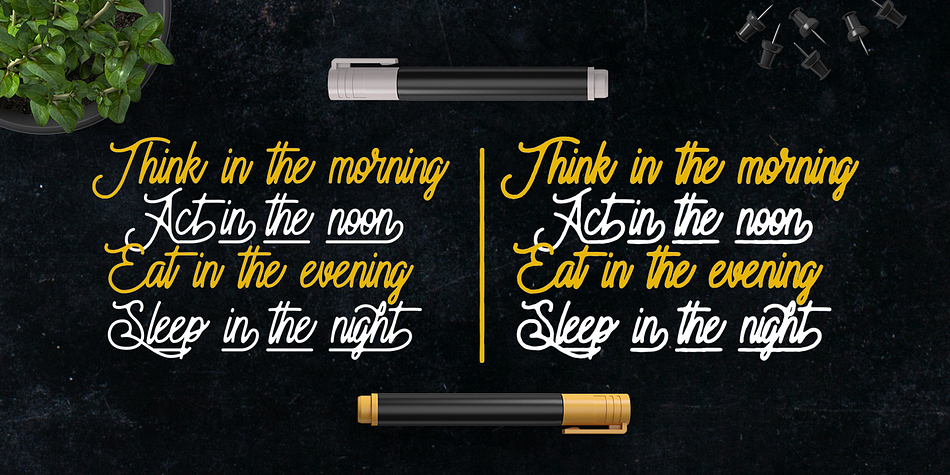 Think in the morning
Act in the noon
Eat in the evening
Sleep in the night
Think in the morning
Act in the noon
Eat in the evening
Sleep in the night